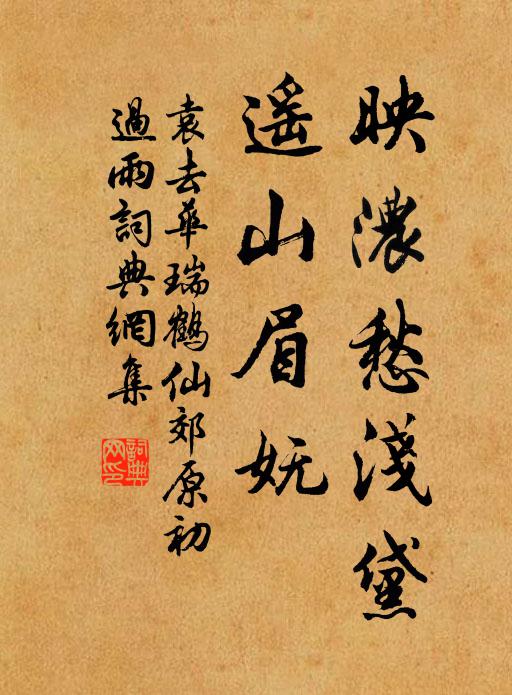 映濃愁淺黛
遥山眉妩
袁去華瑞鶴仙郊原初
過雨詞典網集
詞典网印